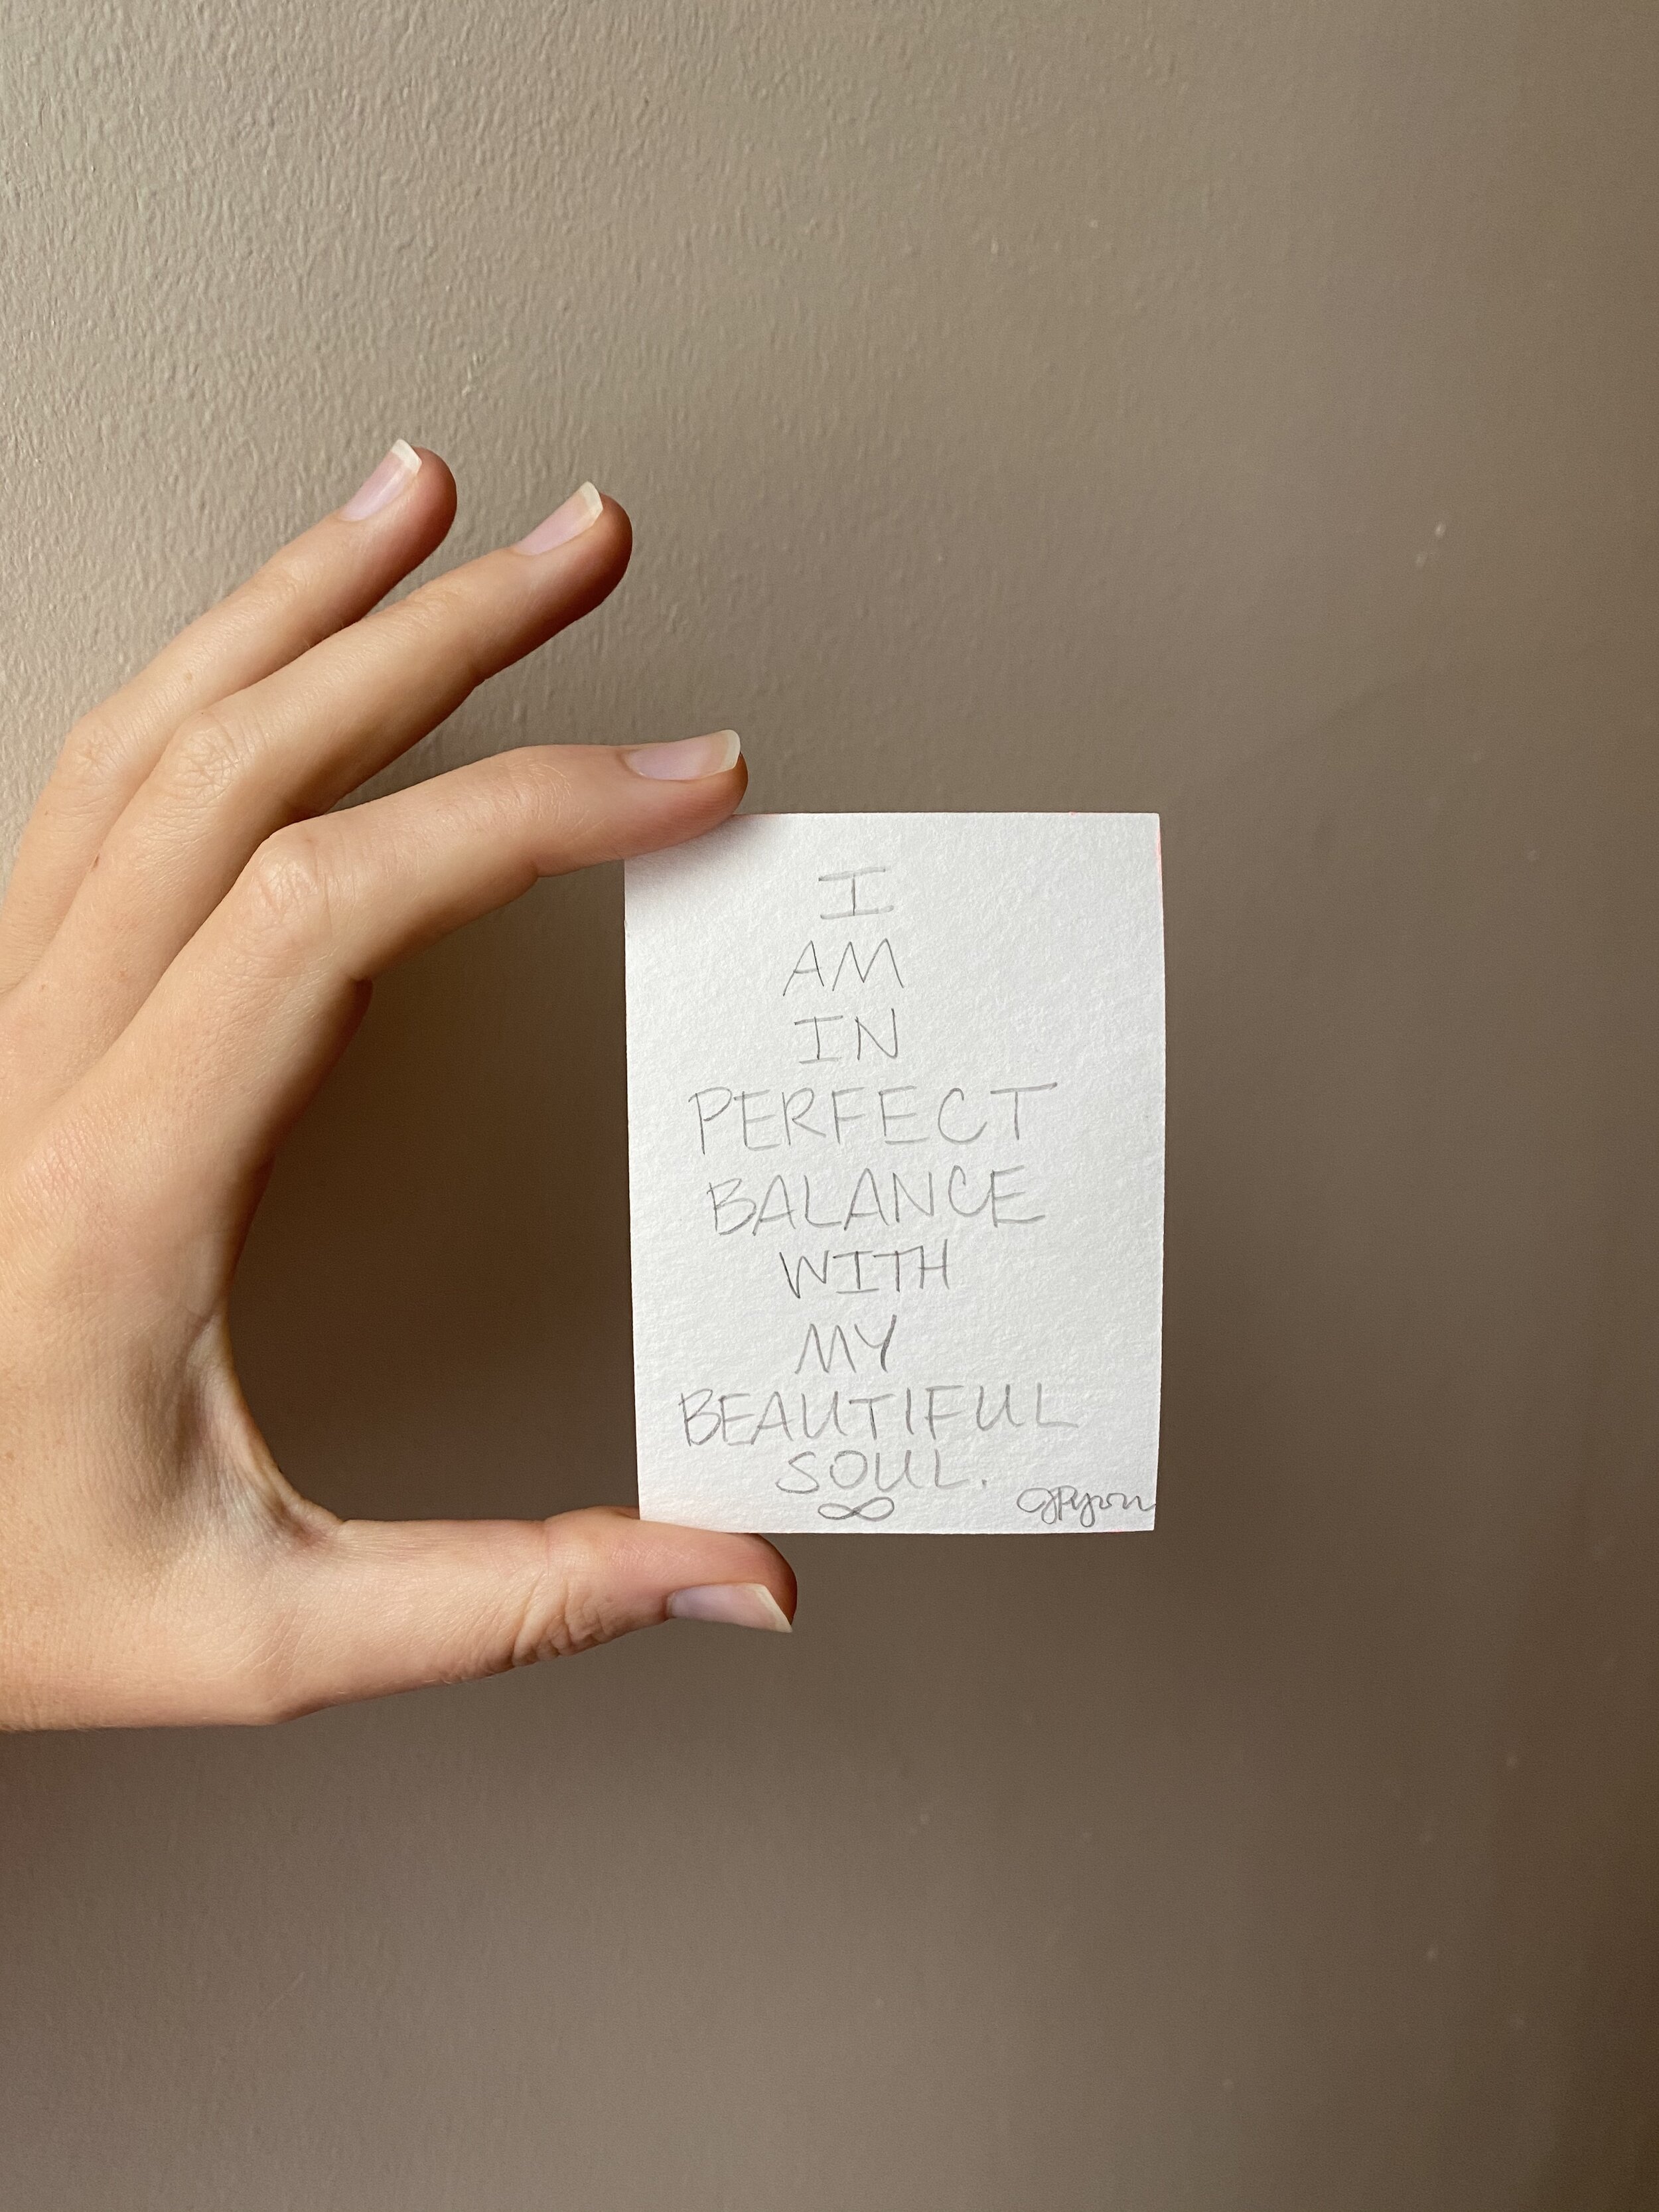 I
AM
IN
PERFECT
BALANCE
WITH
MY
BEAUTIFUL
SOUL.
∞